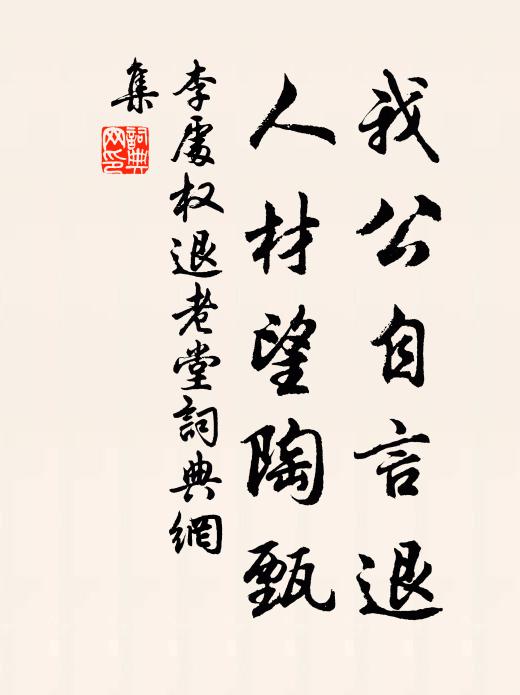 我公自言退
人材望陶甄
李處权退老堂詞典網
集
詞典
网印